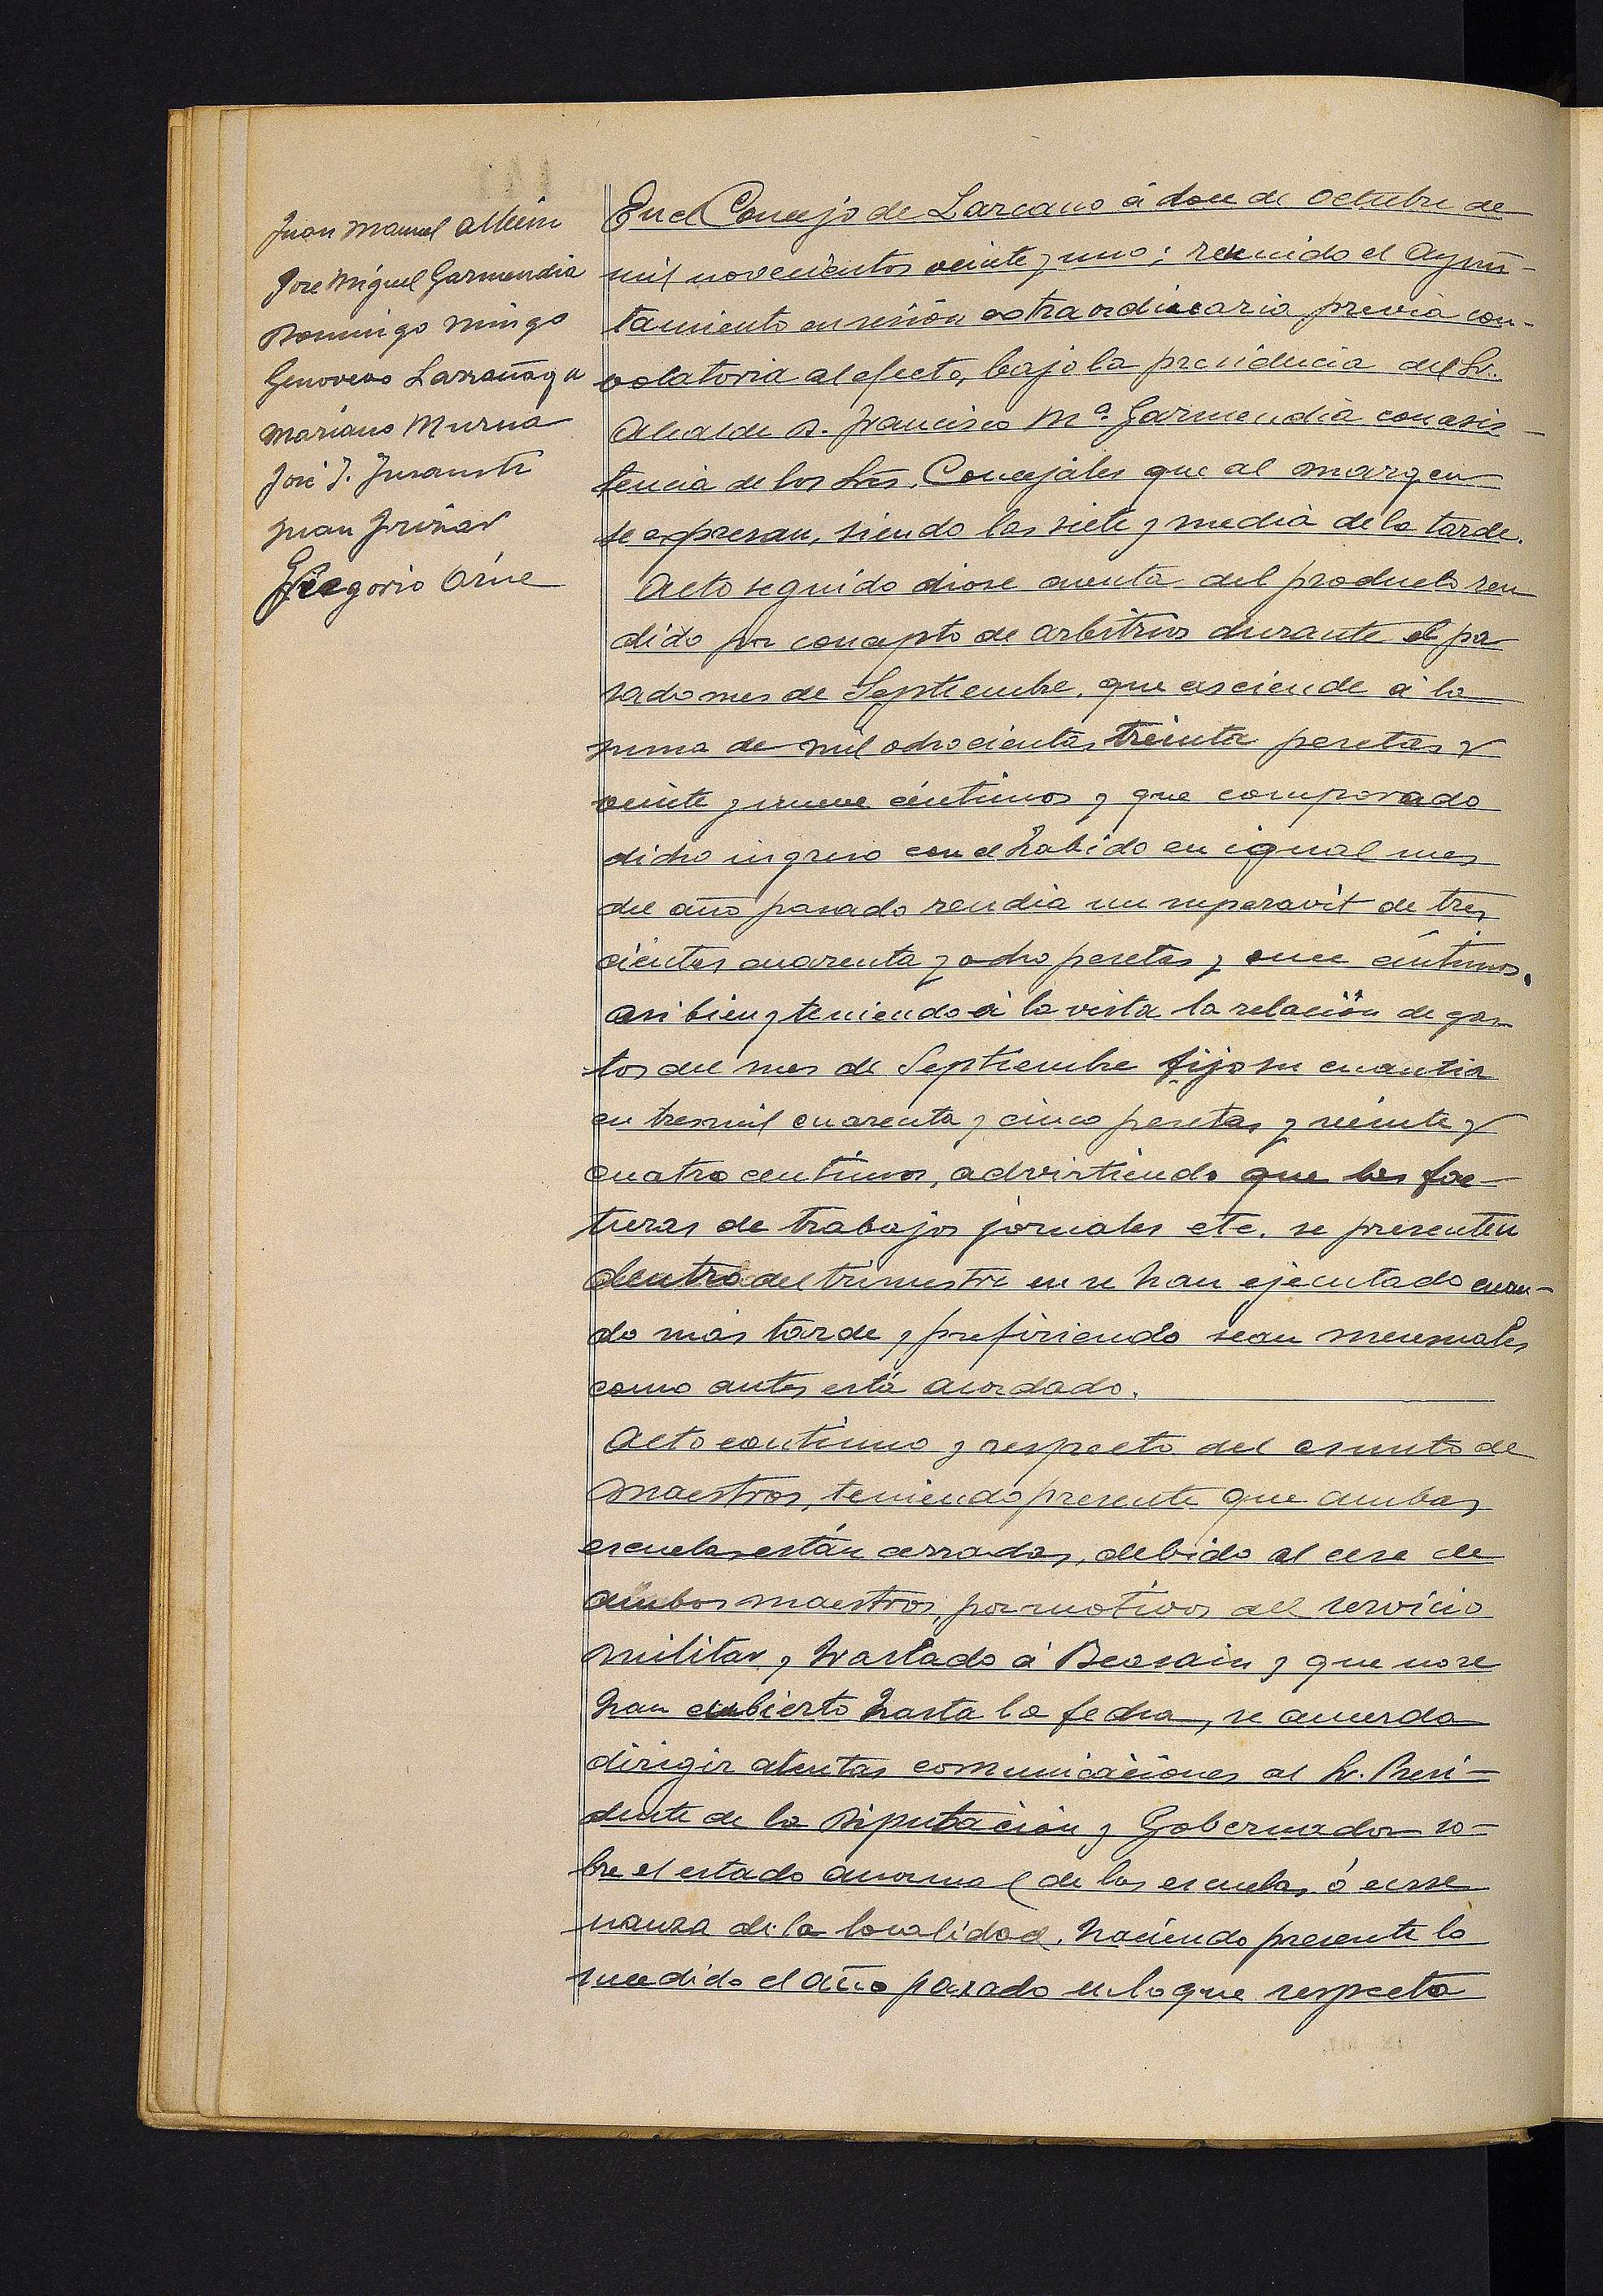 Juan Manuel
Jose Miguel Garmendia
Domingo Mingo
Genoveva Larrañaga
Mariano Murua
José J.
Juan
Gregorio
En el Concejo de Lazcano á doce de Octubre de
mil novecientos veinte y uno; reunido el Ayun-
tamiento en sesión extraordinaria previa con-
vocatoria al efecto, bajo la presidencia del Sr.
Alcalde D. Francisco Mª Garmendia con asis-
tencia de los Srs. Concejales que al margen
se expresan, siendo las siete y media de la tarde.
Acto seguido diose cuenta del producto ren
dido por concepto de arbitrios durante el pa
sado mes de Septiembre, que asciende á la
suma de mil ochocientas treinta pesetas y
veinte y nueve céntimos y que comparado
dicho ingreso con el habido en igual mes
del año pasado rendia un superavit de tres
cientas cuarenta y ocho pesetas y once céntimos.
asi bien y teniendo á la vista la relación de gas
tos del mes de Septiembre fijo su cuantia
en tresmil cuarenta y cinco pesetas y veinte y
cuatro centimos, advirtiendo que las fac-
turas de trabajos jornales etc. se presenten
dentro del trimestre en se han ejecutado cuan-
do más tarde y prefiriendo sean mensuales
como antes está acordado.
Acto continuo y respecto del asunto de
Maestros, teniendo presente que ambas
escuelas están cerradas, debido al cese de
ambos maestros, por motivos del servicio
militar y traslado á Beasain y que no se
han cubierto hasta la fecha, se acuerda
dirigir atentas comunicaciones al Sr. Presi-
dente de la Diputación y Gobernador so-
bre el estado anormal de las escuelas ó ense
nanza de la localidad, haciendo presente lo
sucedido el año pasado en lo que respecta